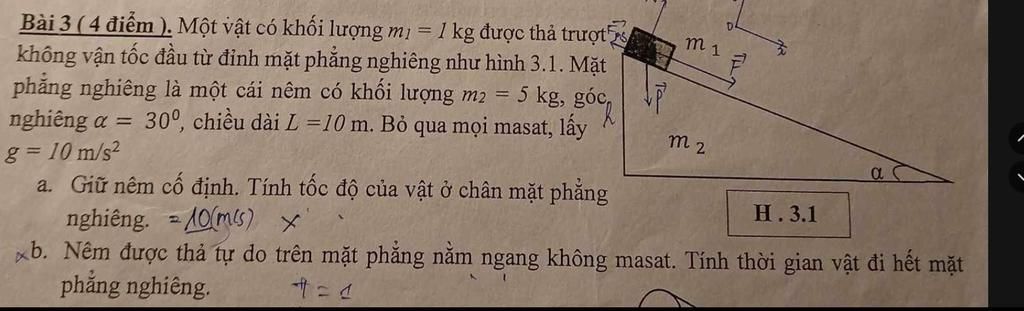 Bài 3 ( 4 điểm ). Một vật có khối lượng m1 = 1 kg được thả trượt
không vận tốc đầu từ đỉnh mặt phẳng nghiêng như hình 3.1. Mặt
phẳng nghiêng là một cái nêm có khối lượng m2 = 5 kg, góc
nghiêng α = 30⁰, chiều dài L =10 m. Bỏ qua mọi masat, lấy
g = 10 m/s²
a. Giữ nêm cố định. Tính tốc độ của vật ở chân mặt phẳng
nghiêng. = 10(m/s) x
x b. Nêm được thả tự do trên mặt phẳng nằm ngang không masat. Tính thời gian vật đi hết mặt
phẳng nghiêng.
m 1
F
P
h
m 2
α
H . 3.1